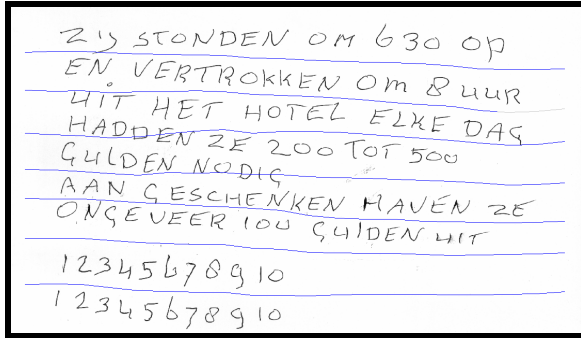 ZIJ STONDEN OM 630 OP
EN VERTROKKEN OM 8 UUR
UIT HET HOTEL ELKE DAG
HADDEN ZE 200 TOT 500
GULDEN NODIG
AAN GESCHENKEN HAVEN ZE
ONGEVEER 100 GULDEN UIT
1 2 3 4 5 6 7 8 9 10
1 2 3 4 5 6 7 8 9 10